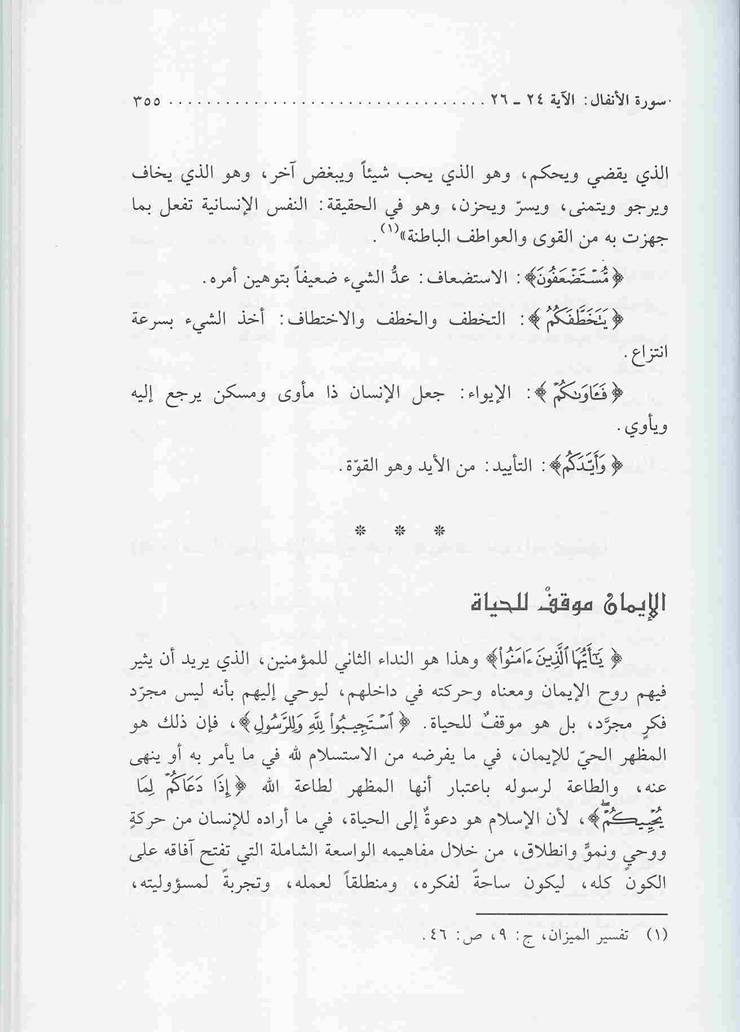 سورة الأنفال: الآية ٢٤ ـ ٢٦ .................................. ٣٥٥
الذي يقضي ويحكم، وهو الذي يحب شيئاً ويبغض آخر، وهو الذي يخاف
ويرجو ويتمنى، ويسرّ ويحزن، وهو في الحقيقة: النفس الإنسانية تفعل بما
جهزت به من القوى والعواطف الباطنة»(١).
﴿مُّسْتَضْعَفُونَ﴾: الاستضعاف: عدُّ الشيء ضعيفاً بتوهين أمره.
﴿يَتَخَطَّفَكُمُ﴾: التخطف والخطف والاختطاف: أخذ الشيء بسرعة
انتزاع.
﴿فَـَٔاوَىٰكُمْ﴾: الإيواء: جعل الإنسان ذا مأوى ومسكن يرجع إليه
ويأوي.
﴿وَأَيَّدَكُم﴾: التأييد: من الأيد وهو القوّة.
* * *
الإيمان موقفٌ للحياة
﴿يَـٰٓأَيُّهَا ٱلَّذِينَ ءَامَنُوا۟﴾ وهذا هو النداء الثاني للمؤمنين، الذي يريد أن يثير
فيهم روح الإيمان ومعناه وحركته في داخلهم، ليوحي إليهم بأنه ليس مجرّد
فكرٍ مجرَّد، بل هو موقفٌ للحياة. ﴿ٱسْتَجِيبُوا۟ لِلَّهِ وَلِلرَّسُولِ﴾، فإن ذلك هو
المظهر الحيّ للإيمان، في ما يفرضه من الاستسلام لله في ما يأمر به أو ينهى
عنه، والطاعة لرسوله باعتبار أنها المظهر لطاعة الله ﴿إِذَا دَعَاكُمْ لِمَا
يُحْيِيكُمْ ۖ﴾، لأن الإسلام هو دعوةٌ إلى الحياة، في ما أراده للإنسان من حركةٍ
ووحيٍ ونموٍّ وانطلاق، من خلال مفاهيمه الواسعة الشاملة التي تفتح آفاقه على
الكون كله، ليكون ساحةً لفكره، ومنطلقاً لعمله، وتجربةً لمسؤوليته،
(١) تفسير الميزان، ج: ٩، ص: ٤٦.